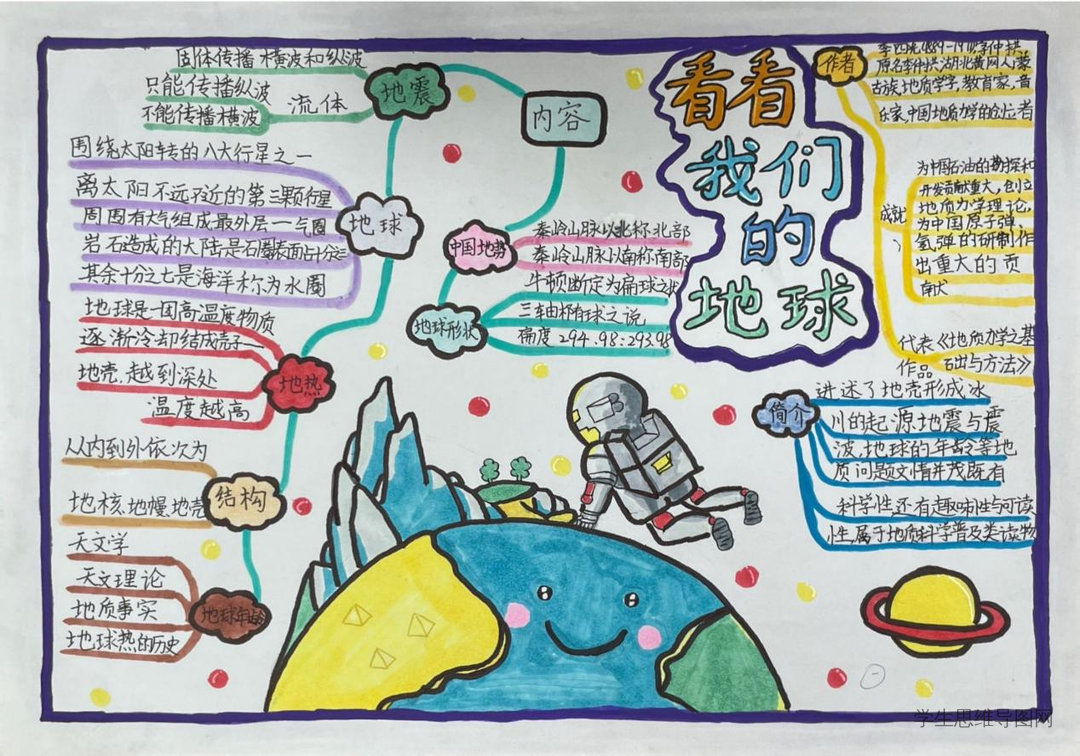 看看
我们
的
地球
作者
李四光(1889-1971)字仲拱
原名李仲揆,湖北黄冈人,蒙
古族,地质学子,教育家、音
乐家,中国地质力学的创立者
成就
为中国石油的勘探和
开发贡献重大,创立
地质力学理论,
为中国原子弹,
氢弹的研制作
出重大的贡
献
代表
作品
《地质力学之基
础与方法》
简介
讲述了地壳形成冰
川的起源地震与震
波,地球的年龄等地
质问题文情并茂既有
科学性还有趣味性与可读
性属于地质科学普及类读物
内容
地震
固体传播 横波和纵波
流体
只能传播纵波
不能传播横波
地球
围绕太阳转的八大行星之一
离太阳不远不近的第三颗行星
周围有大气组成最外层一气圈
岩石造成的大陆是石圈表面占十分之三
其余十分之七是海洋称为水圈
中国地势
秦岭山脉以北称北部
秦岭山脉以南称南部
地球形状
牛顿断定为扁球之状
三轴椭球之说
扁度 294.98:293.98
地热
地球是一团高温度物质
逐渐冷却结成壳子
地壳,越到深处
温度越高
结构
从内到外依次为
地核、地幔、地壳
地球年龄
天文学
天文理论
地质事实
地球热的历史
学生思维导图网